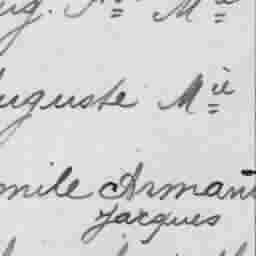 uguste Mie
mile Arman
Jacques